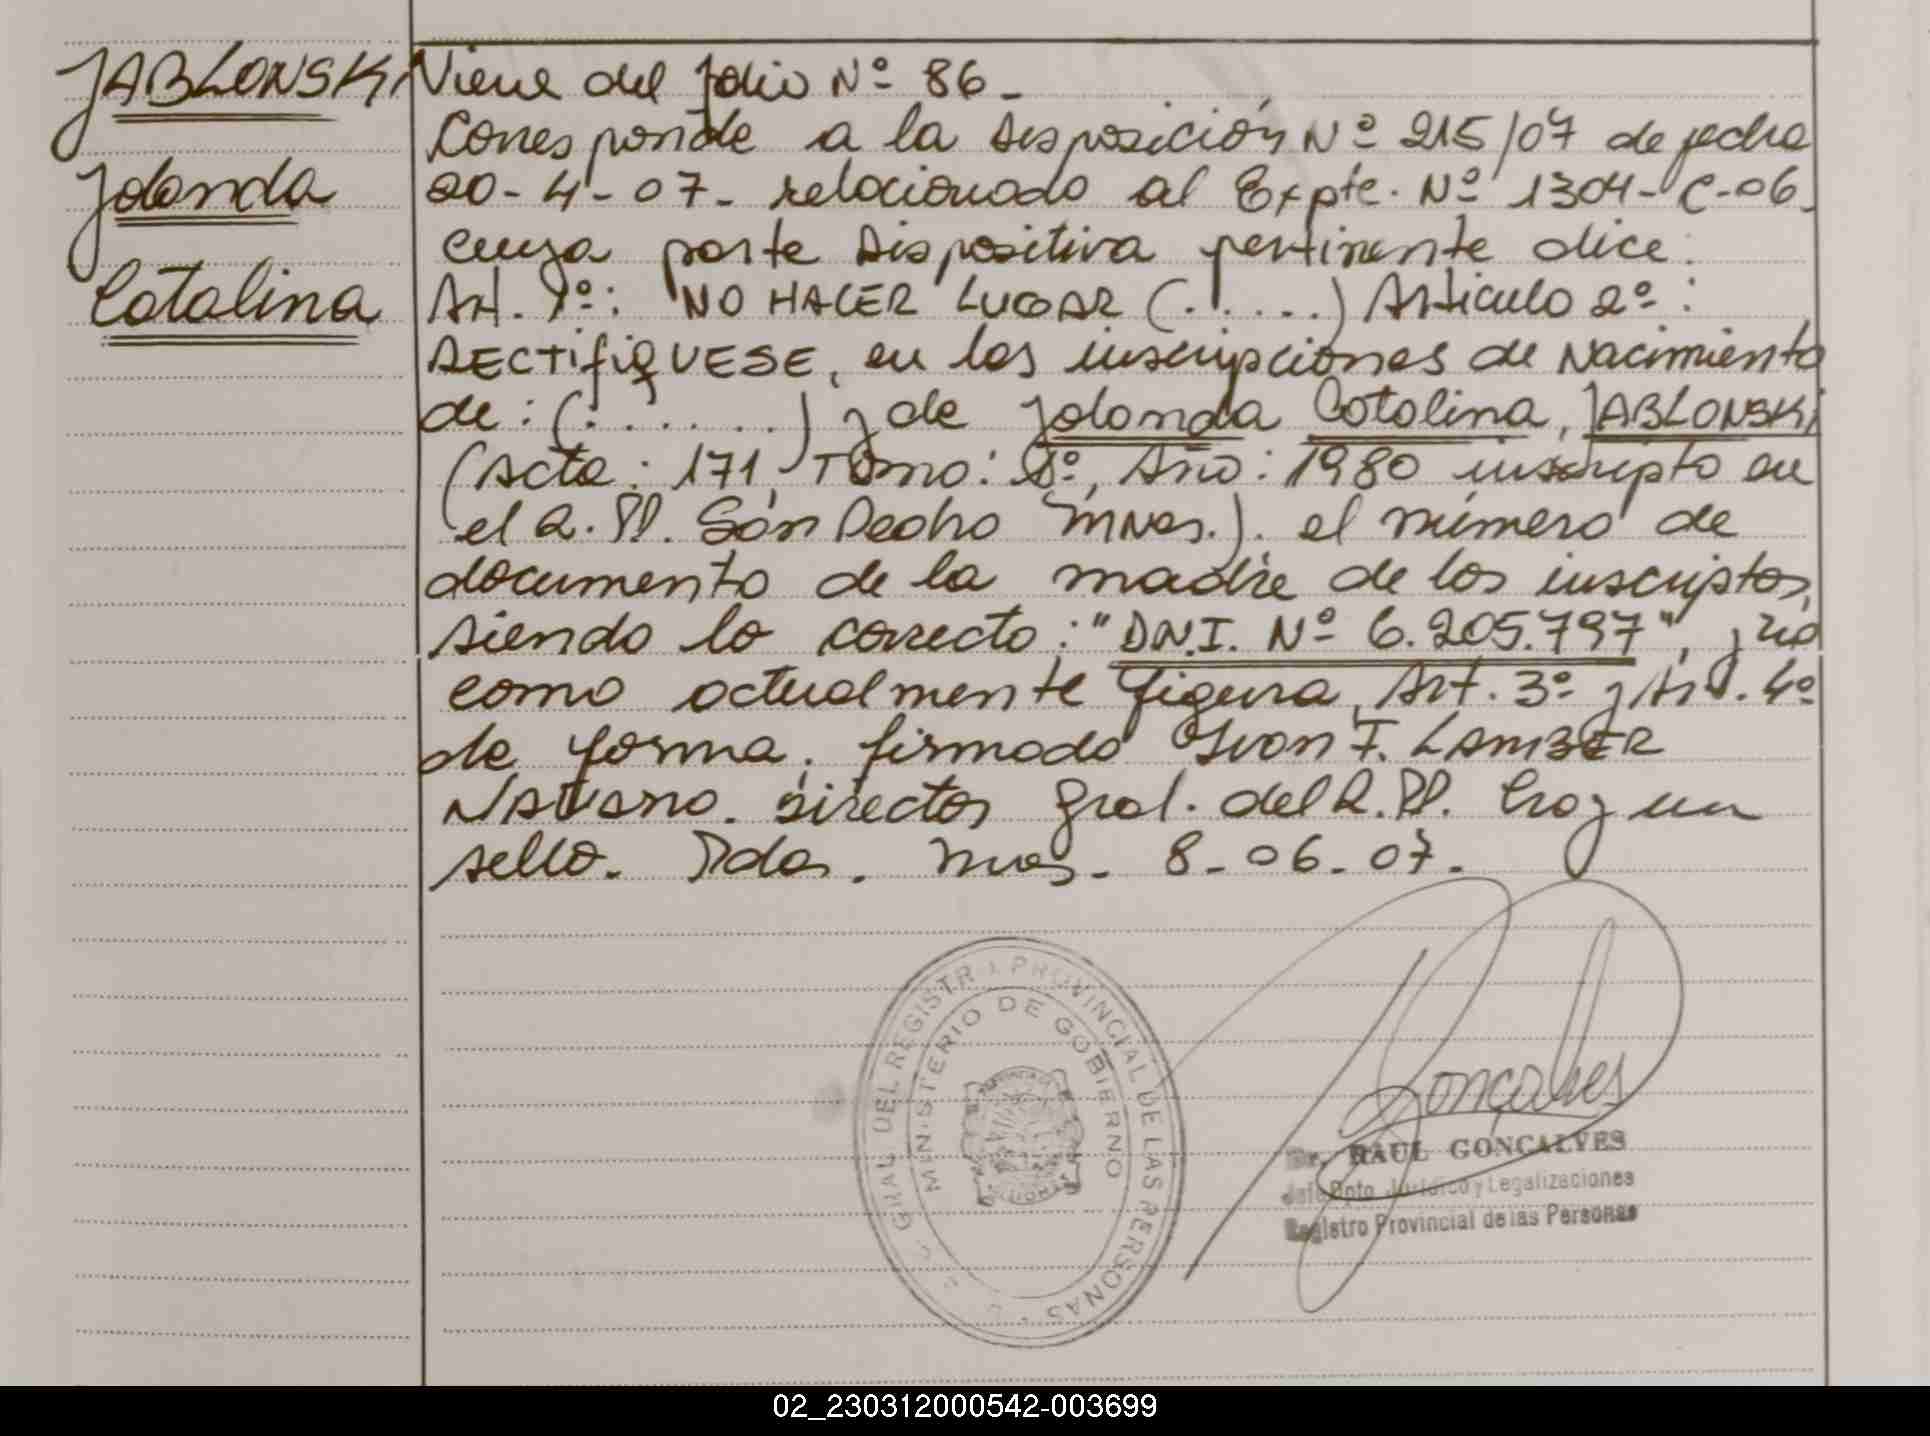 JABLONSKI
Jolanda
Catalina
Viene del folio Nº 86_
Corresponde a la Disposición Nº 215/07 de fecha
20-4-07- relacionado al Expte. Nº 1304-C-06_
cuya parte Dispositiva pertinente dice:
Art. 1º: NO HACER LUGAR (.....) Artículo 2º:
RECTIFIQUESE, en las inscripciones de Nacimiento
de: (.......) y de Jolanda Catalina, JABLONSKI
(Acta: 171, Tomo: Iº, Año: 1980 inscripto en
el R.PP. San Pedro Mnes.). el número de
documento de la madre de los inscriptos,
siendo lo correcto: "D.N.I. Nº 6.205.797", y no
como actualmente figura, Art. 3º y Art. 4º
de forma. firmado Ivan F. LAMBER
Navarro. Director Gral. del R.PP. hay un
sello. Pdas. Mnes. 8-06-07.
GRAL DEL REGISTR PROVINCIAL DE LAS PERSONAS
MINISTERIO DE GOBIERNO
Gonçalves
Dr. RAUL GONÇALVES
Jefe Dpto Jurídico y Legalizaciones
Registro Provincial de las Personas
02_230312000542-003699